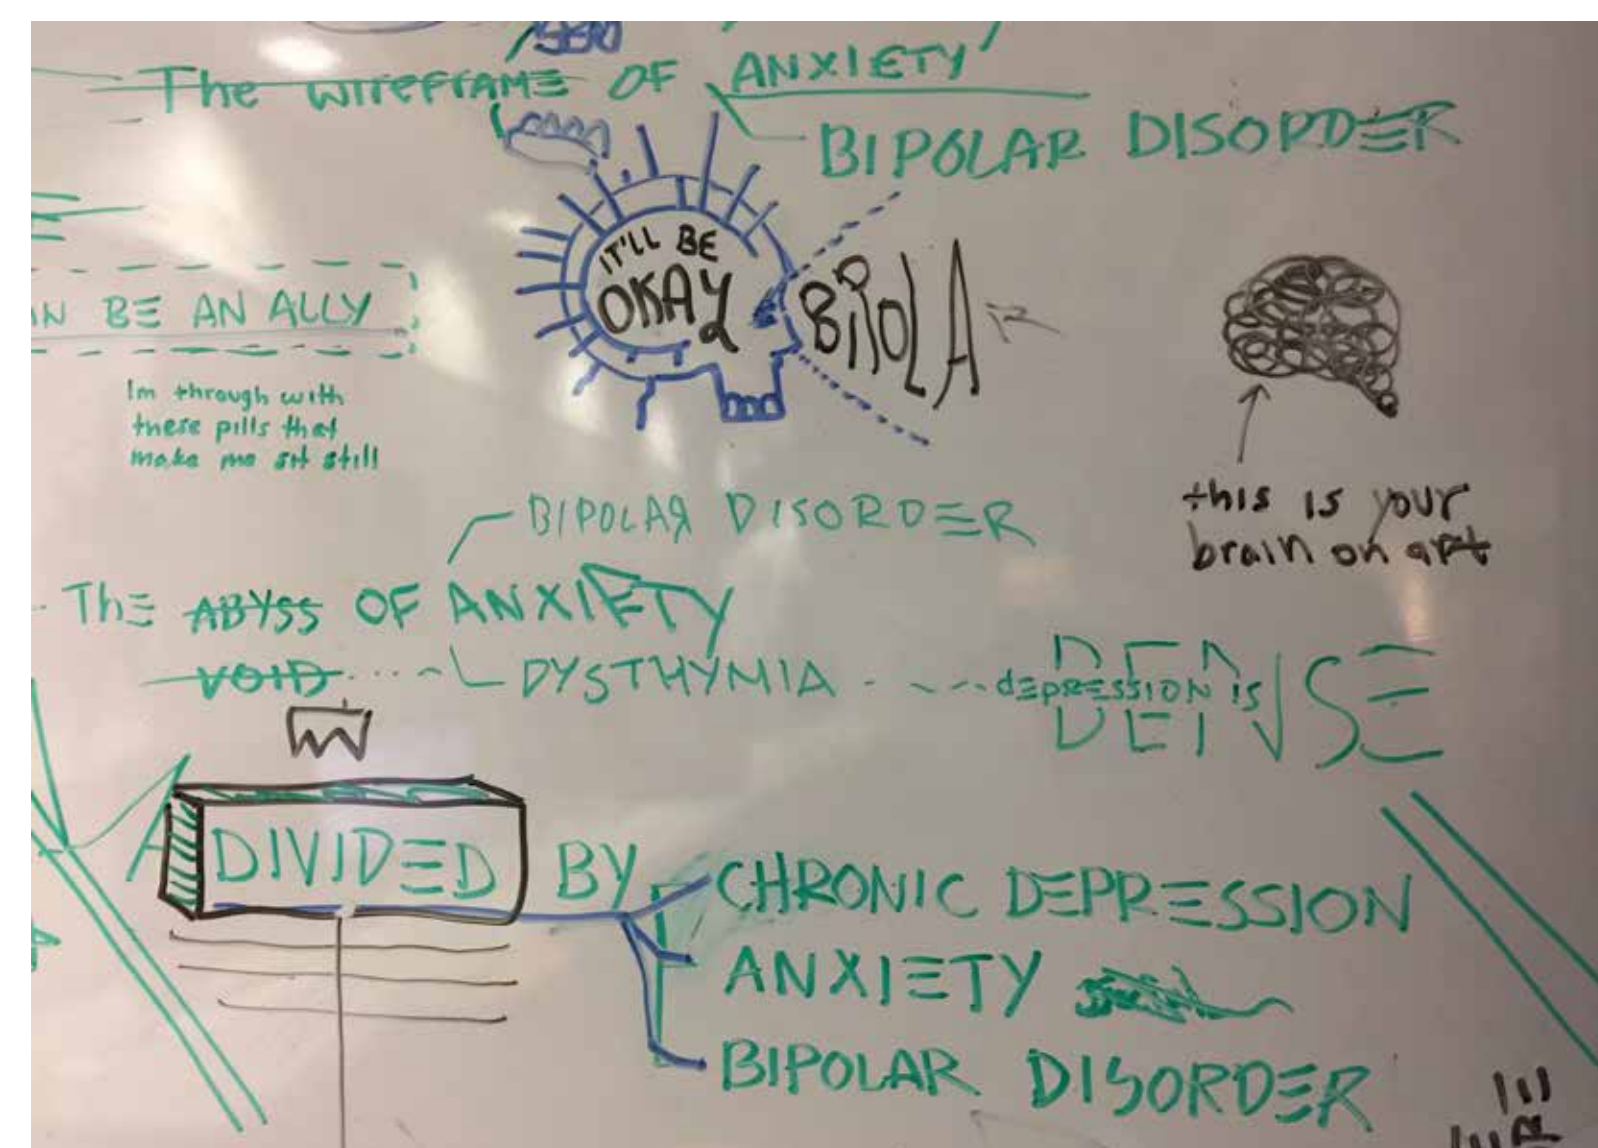 The WIREFRAME OF ANXIETY
BIPOLAR DISORDER
IT'LL BE
OKAY
BE AN ALLY
Im through with
these pills that
make me sit still
this is your
brain on art
BIPOLAR DISORDER
ThE ABYSS OF ANXIETY
VOID DYSTHYMIA dEPRESSION is DENSE
A DIVIDED BY CHRONIC DEPRESSION
ANXIETY
BIPOLAR DISORDER